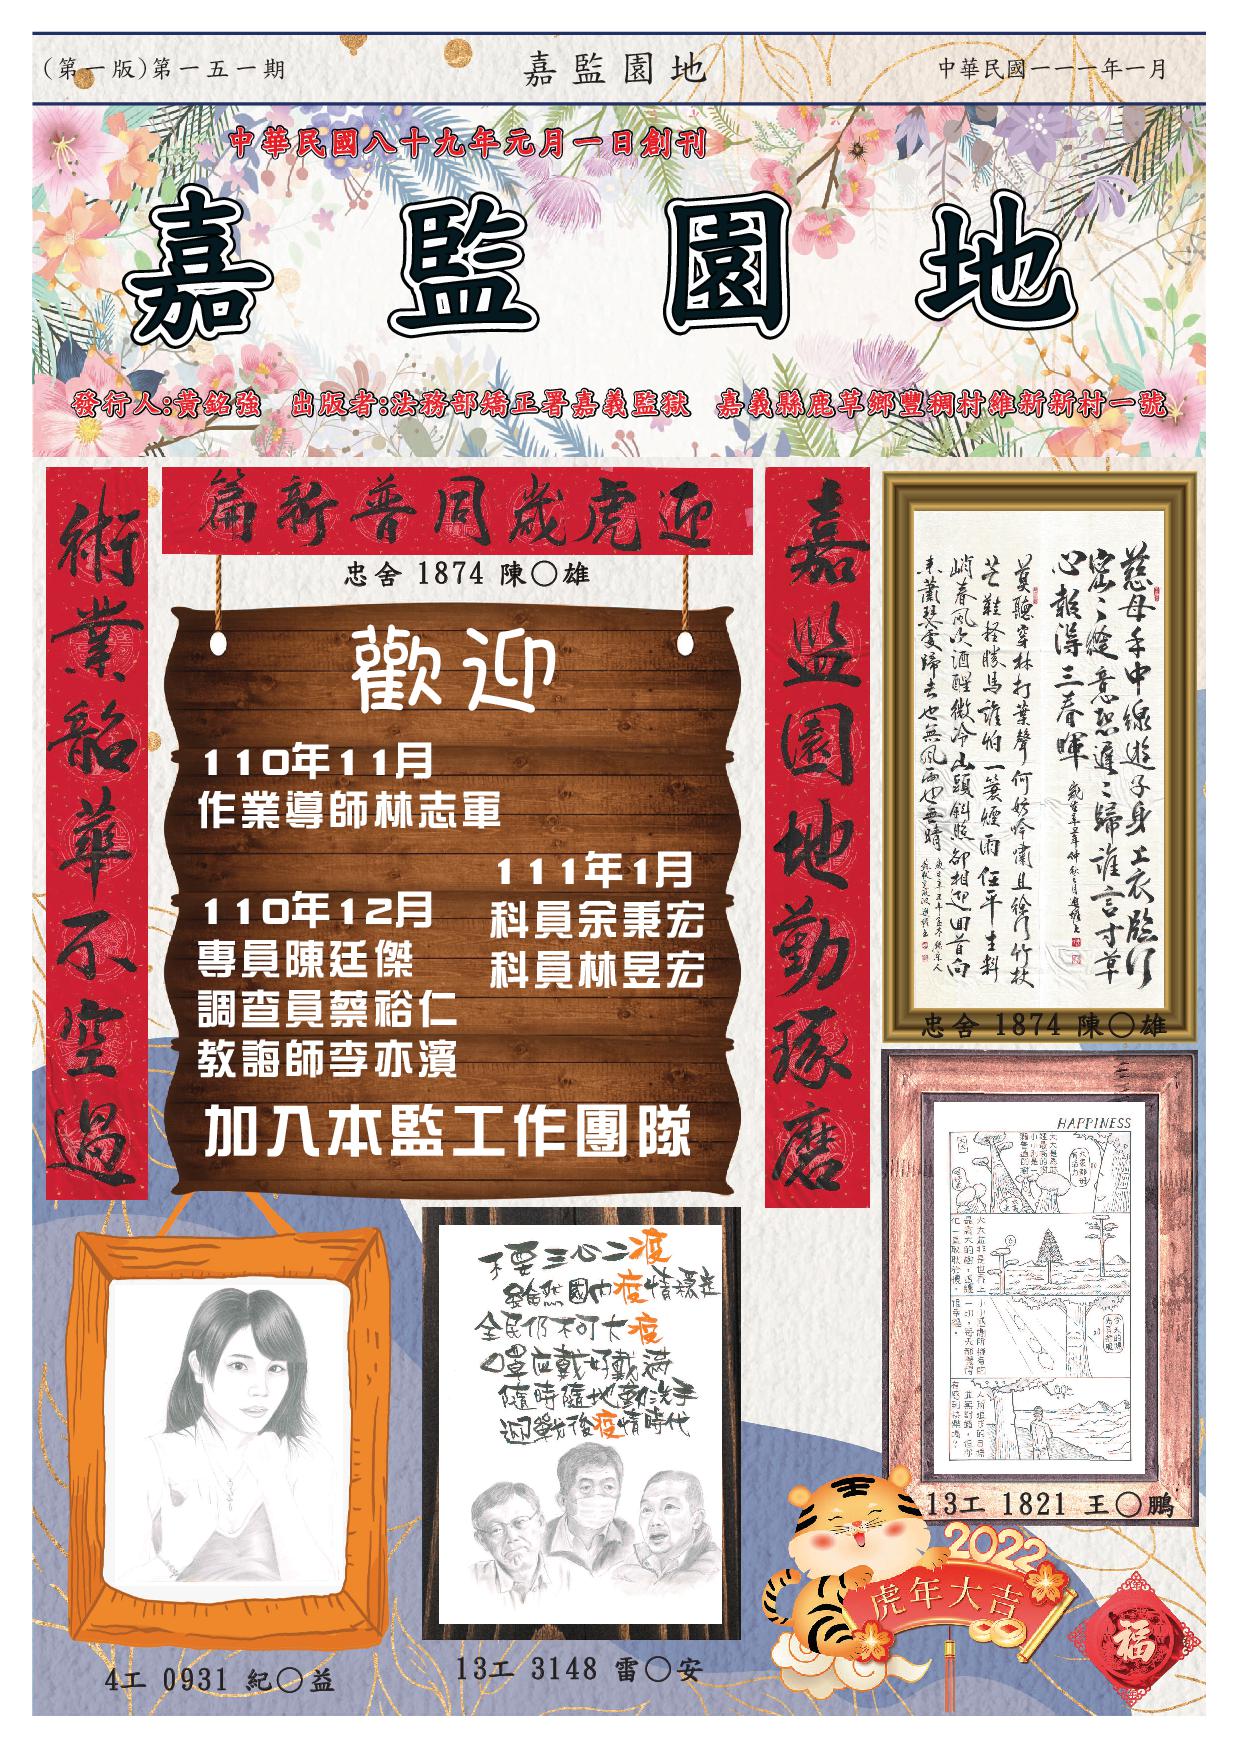 (第一版)第一五一期
嘉監園地
中華民國一一一年一月
中華民國八十九年元月一日創刊
嘉監園地
發行人:黃銘強 出版者:法務部矯正署嘉義監獄 嘉義縣鹿草鄉豐稠村維新新村一號
迎虎歲同普新篇
忠舍 1874 陳○雄
嘉監園地勤琢磨
術業韶華不空過
歡迎
110年11月
作業導師林志軍
110年12月
專員陳廷傑
調查員蔡裕仁
教誨師李亦濱
111年1月
科員余秉宏
科員林昱宏
加入本監工作團隊
慈母手中線遊子身上衣臨行
密密縫意恐遲遲歸誰言寸草
心報得三春暉
莫聽穿林打葉聲何妨吟嘯且徐行竹杖
芒鞋輕勝馬誰怕一簑煙雨任平生料
峭春風吹酒醒微冷山頭斜照卻相迎回首向
來蕭瑟處歸去也無風雨也無晴
忠舍 1874 陳○雄
HAPPINESS
13工 1821 王○鵬
4工 0931 紀○益
不要三心二疫
雖然國內疫情穩定
全民仍不可大疫
口罩應戴好戴滿
隨時隨地勤洗手
迎戰後疫情時代
13工 3148 雷○安
2022
虎年大吉
福